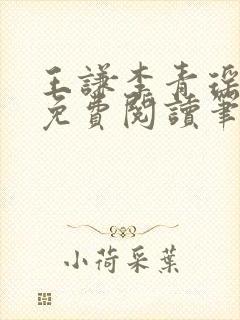 王謙李青瑶
免費閱讀筆
小荷采葉